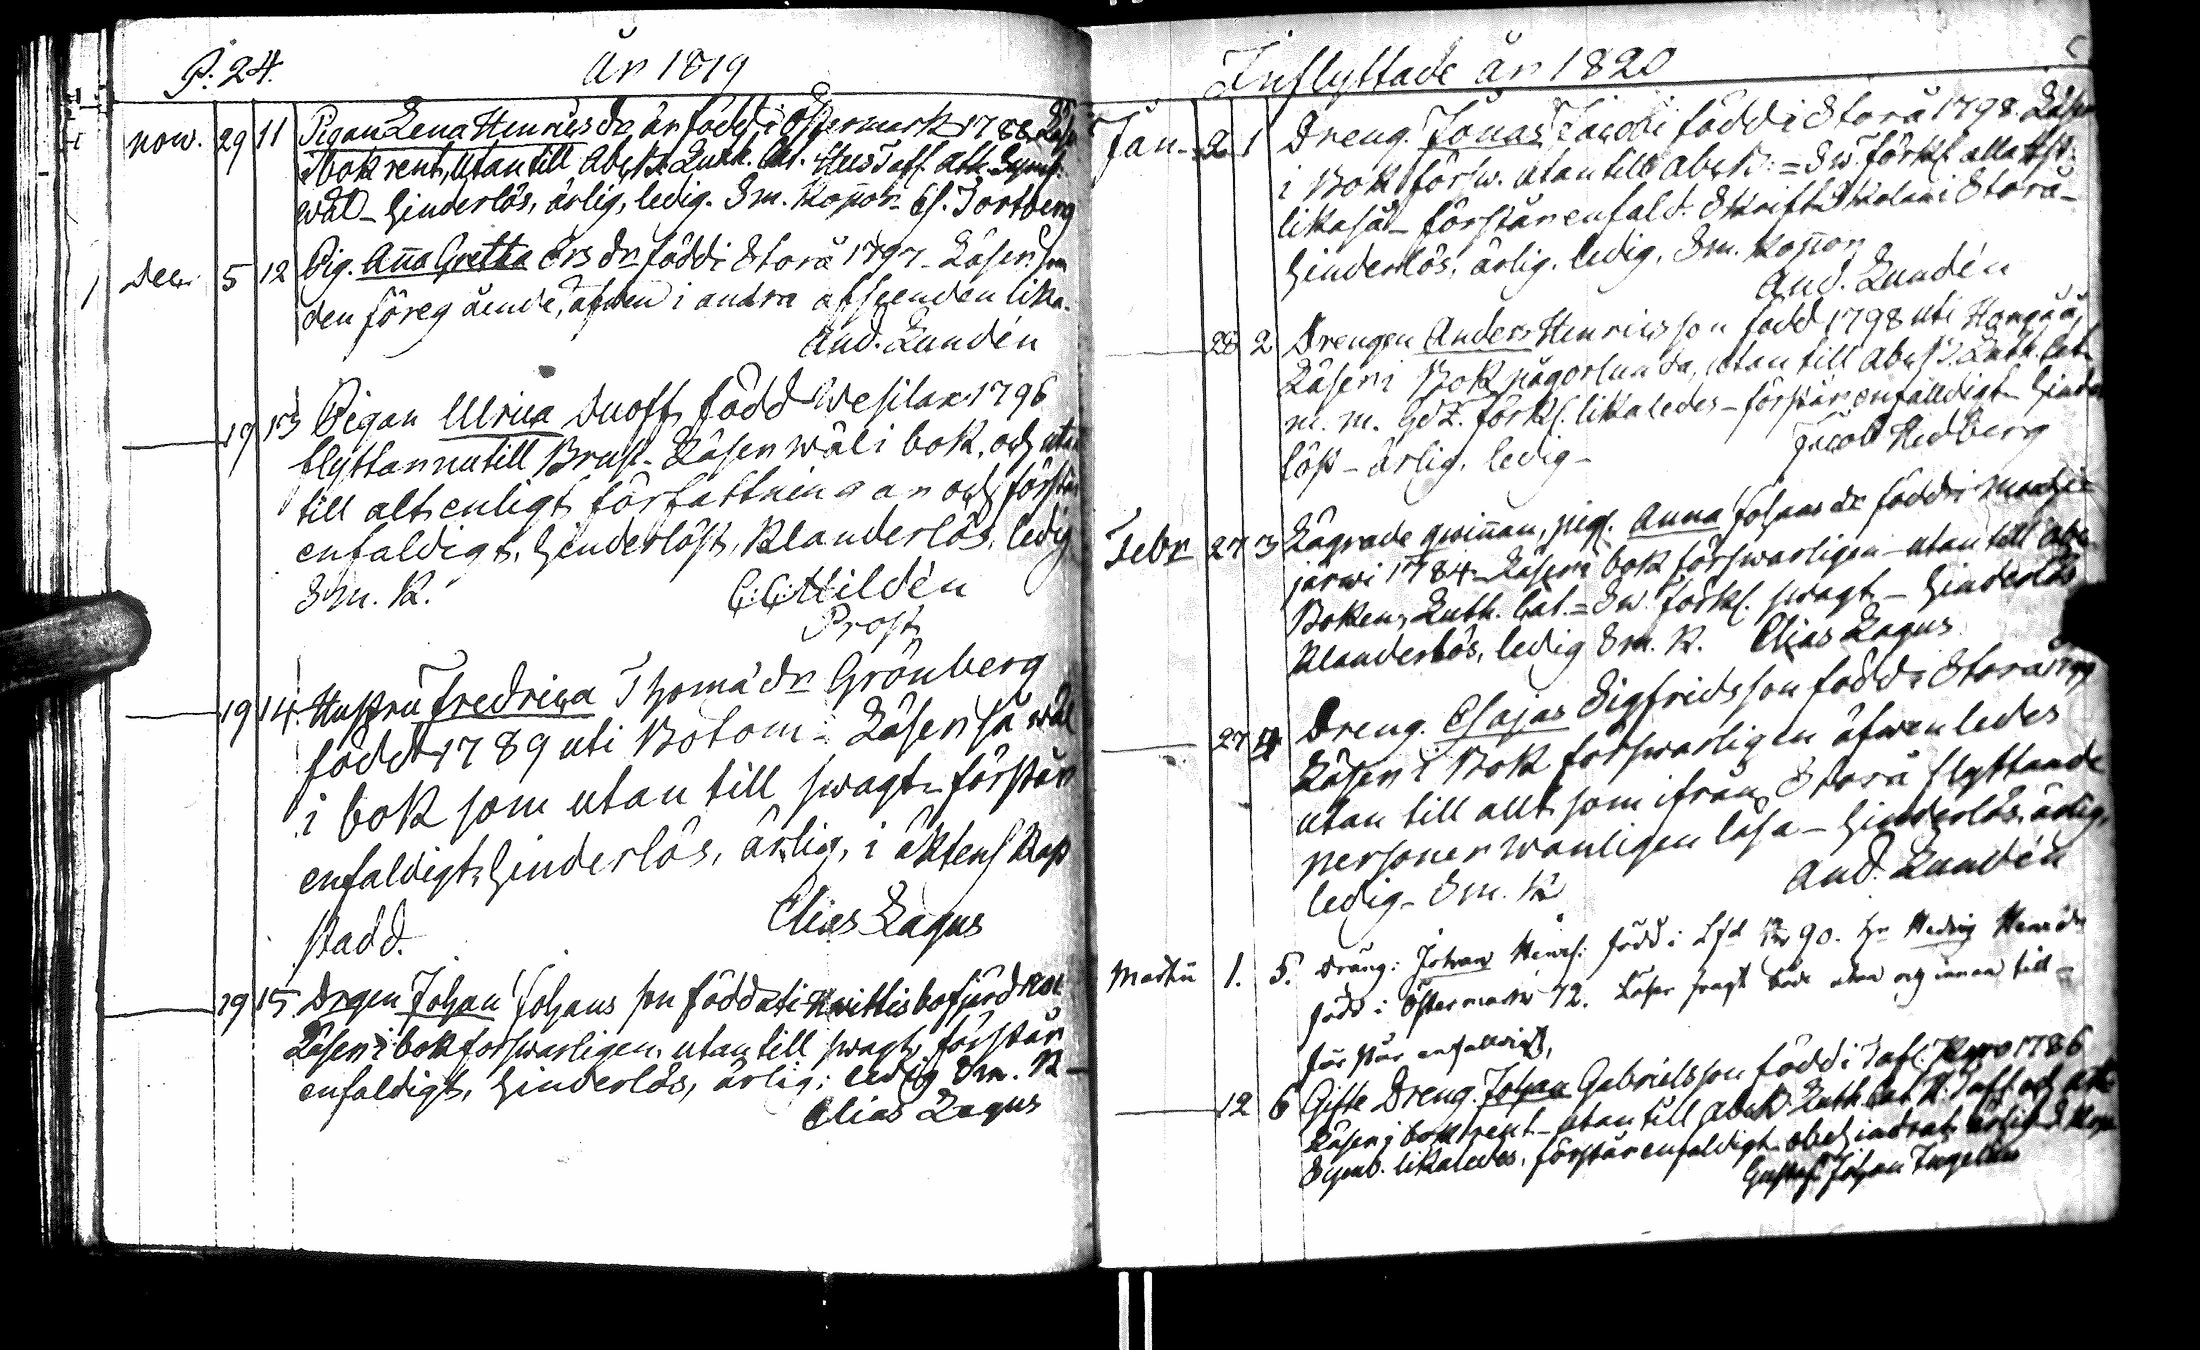 P. 24. År 1819
Nov. 29 11 Pigan Lena Henricsdr, är född i Östermark 1788, Läser
i bok rent, utan till AbcB. Luth. Cat. Hus Tafl. Ath. Symb.
wäl - hinderlös, ärlig, ledig. Sm. Koppor. Es. Tortberg
Dec. 5 12 Pig. Anna Gretha Ersdr född i Storå 1797 - Läser som
den föreg ående, äfwen i andra afseenden lika.
And. Lundén
19 13 Pigan Ulrica Snoff, född Wesilax 1796
flyttar nu till Brusl. Läser wäl i bok, och utan
till alt enligt författningar och förstår
enfaldigt, hinderlös, Klanderlös, ledig
Sm. K. C. C. Hildén
Prost
19 14. Hustru Fredrica Thomædr Grönberg
född 1789 uti Botom. Läser så wäl
i bok som utan till swagt. förstår
enfaldigt, hinderlös, ärlig, i äktenskap
stadd. Elias Lagus
19 15 Drgen Johan Johansson född uti Hwittisbofjärd
Läser i bok forswarligen, utan till swagt, förstår
enfaldigt, hinderlös, ärlig, ledig Sm. K -
Elias Lagus
Inflyttade år 1820
Jan. 2 1 Dreng. Jonas Jacobi född i Storå 1798. Läser
i Bok försw. utan till AbcB. = Sw. förkl. alla Hst.
likaså - förstår enfald. Skrift Skolan i Storå -
hinderlös, ärlig, ledig, Sm. Koppor
And. Lundén
28 2 Drengen Anders Henricsson född 1798 uti
Läser i Bok någorlunda, utan till AbcB. Luth. Cat.
m. m. förkl. likaledes - förstår enfalldigt - hinder
lös - ärlig, ledig - Jacob Hedberg
Febr 27 3 Lägrade qwinnan, pig. Anna Johansdr född i
järwi 1784 - Läser i bok förswarligen - utan till Abc
Boken, Luth. Cat. = Sw. förkl. swagt - hinderlös
Klanderlös, ledig Sm. K. Elias Lagus
27 4 Dreng. Esajas Sigfridsson född i Storå
Läser i Bok forswarligen äfwenledes
utan till allt som ifrån Storå flyttande
personer wanligen läsa - hinderlös, ärlig,
ledig - Sm. K And. Lundén
Martii 1. 5. Dräng: Johan Henrs: född i 90. Hedwig
född i Östermark 92. Läser swagt både utan och innan till -
förstår enfalldigt,
12 6 Gifte Dreng. Johan Gabrielsson född i 1786
Läser i bok rent - utan till AbcB. Luth. Cat. H. Tafl. och Ath.
Symb. likaledes, förstår enfaldigt. ärlig
Gustaf Johan